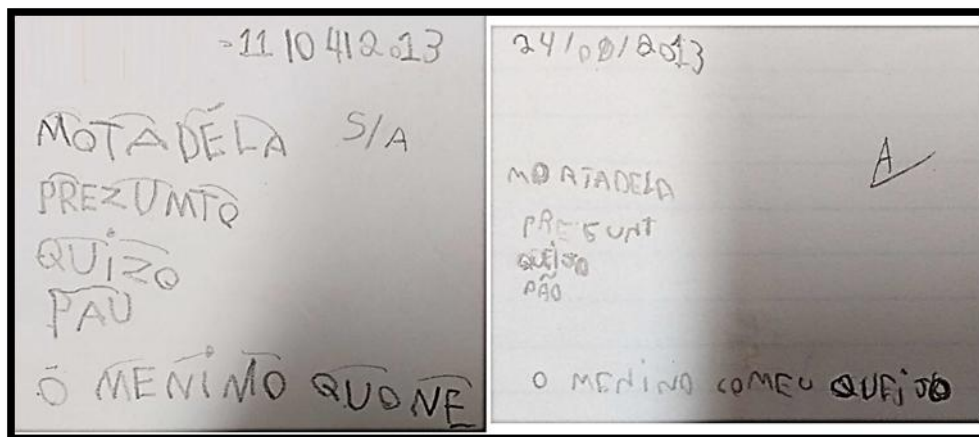 11/04/2013
MOTADÉLA S/A
PREZUMTO
QUIZO
PAU
O MENIMO QUONE
24/08/2013
A
MOATADELA
PRESUNT
QUEIJO
PÃO
O MENINO COMEU QUEIJO